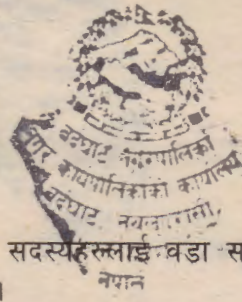 बर्दघाट नगरपालिका
नगर कार्यपालिकाको कार्यालय
बर्दघाट, नवलपरासी
सदस्यहरुलाई वडा स
नेपाल